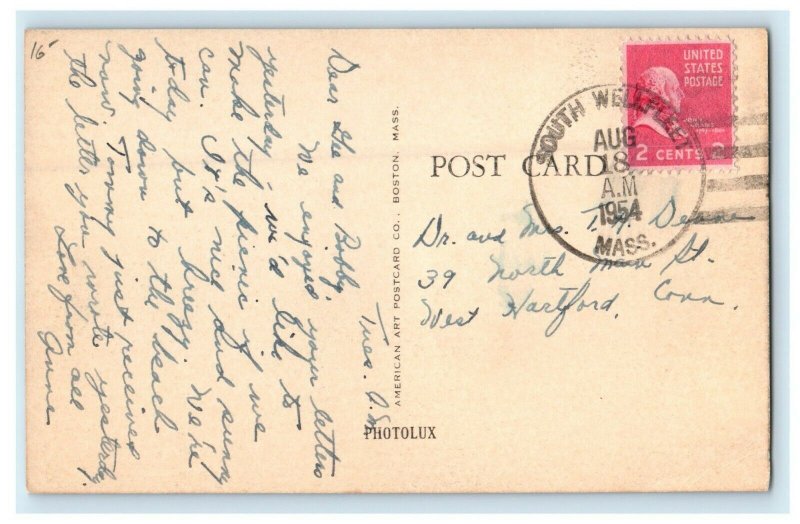 16
Tues. A.M.
Dear Gee and Bobby,
We enjoyed your letters
yesterday - we'd like to
make the picnic if we
can. It's nice and sunny
today but breezy. We're
going down to the beach
now. Tommy just received
the letter you wrote yesterday.
Love from all
Anne
AMERICAN ART POSTCARD CO., BOSTON, MASS.
PHOTOLUX
POST CARD
UNITED
STATES
POSTAGE
JOHN
ADAMS
2 CENTS 2
SOUTH WELLFLEET
AUG
18
A.M
1954
MASS.
Dr. and Mrs. Deane
39 North Main St.
West Hartford, Conn.